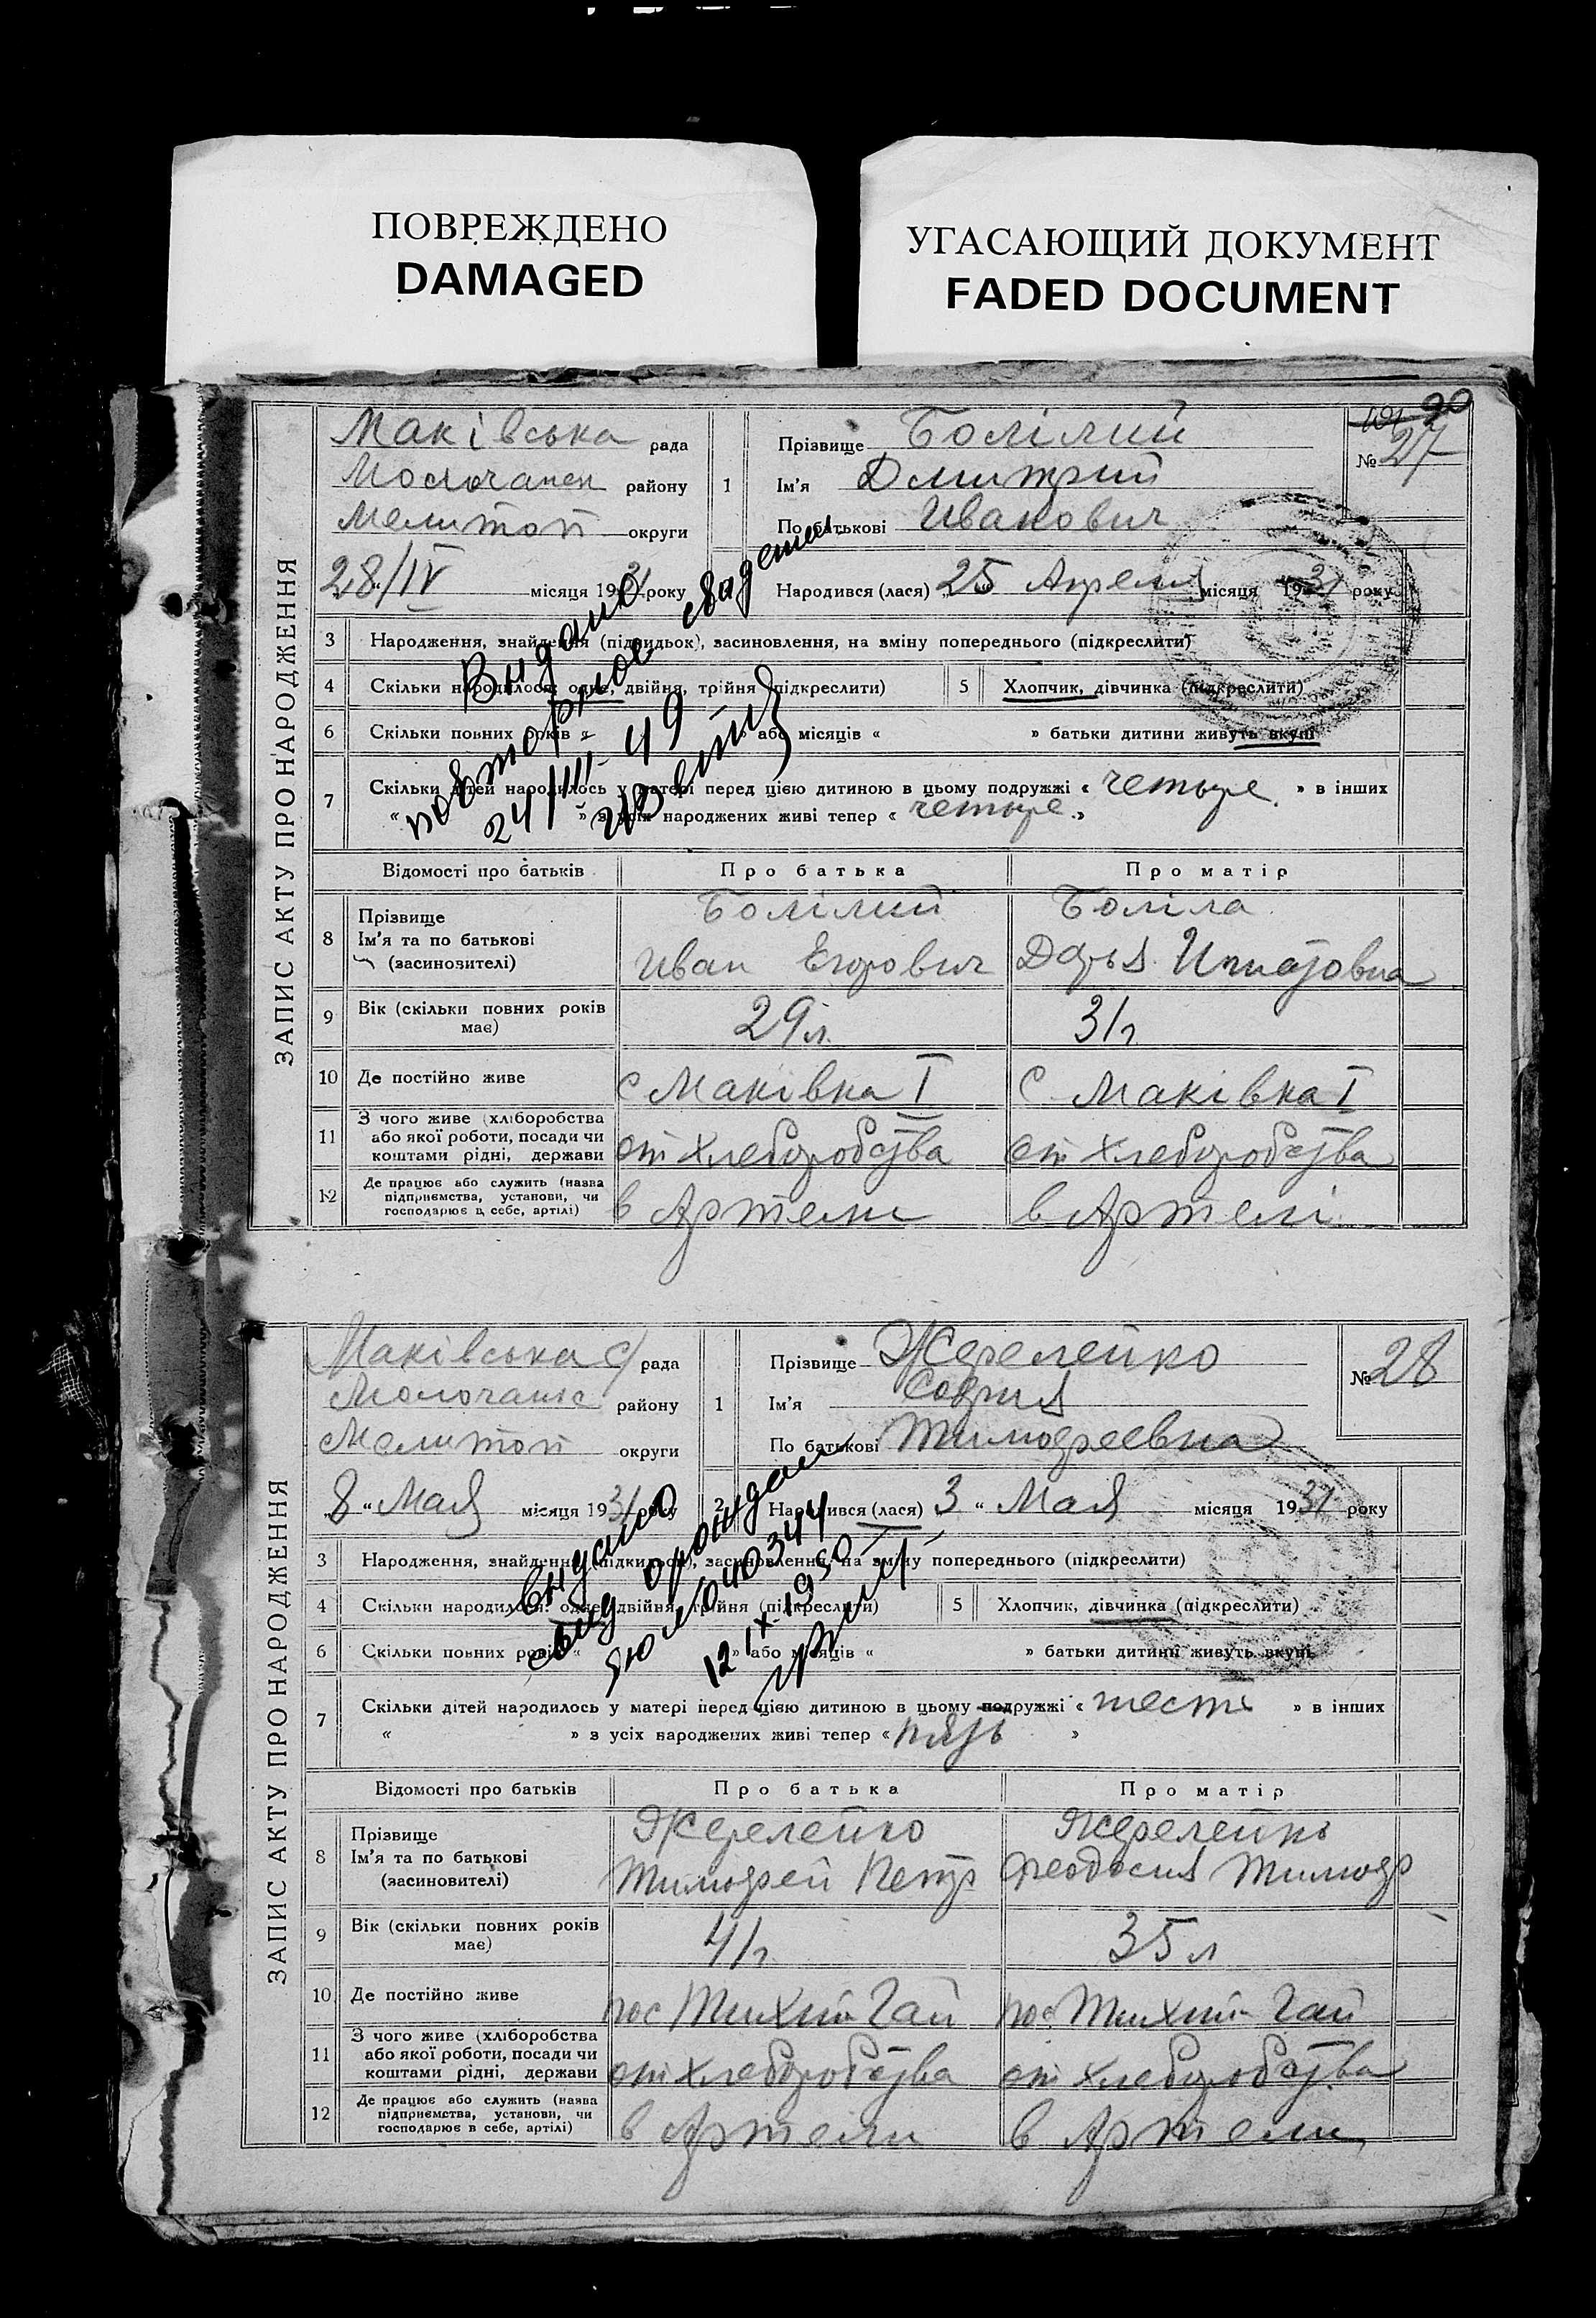 ПОВРЕЖДЕНО
DAMAGED
УГАСАЮЩИЙ ДОКУМЕНТ
FADED DOCUMENT
ЗАПИС АКТУ ПРО НАРОДЖЕННЯ
20
Маківська рада
Молочанск району
Мелитоп округи
28/IV місяця 1931 року
1 Прізвище Болілий
Ім'я Дмитрий
По батькові Иванович
№ 27
Народився (лася) 25 Апреля місяця 1931 року
3 Народження, знайдення (підкидьок), засиновлення, на зміну попереднього (підкреслити)
4 Скільки народилося: одне, двійня, трійня (підкреслити) 5 Хлопчик, дівчинка (підкреслити)
6 Скільки повних років « » або місяців « » батьки дитини живуть вкупі
7 Скільки дітей народилось у матері перед цією дитиною в цьому подружжі « четыре » в інших
« » з усіх народжених живі тепер « четыре »
Видано
повторное свидетел
24/III-49
Відомості про батьків Про батька Про матір
8 Прізвище Ім'я та по батькові (засиновителі)
Болілий Боліла
Иван Егорович Дарья Игнатовна
9 Вік (скільки повних років має) 29 л. 31 г.
10 Де постійно живе с Маківка I с. Маківка I
11 З чого живе (хліборобства або якої роботи, посади чи коштами рідні, держави от хлеборобства от хлеборобства
12 Де працює або служить (назва підприємства, установи, чи господарює в себе, артілі) в Артели в Артелі
ЗАПИС АКТУ ПРО НАРОДЖЕННЯ
Маківська с/рада
Молочанс району
Мелитоп округи
„8“ Мая місяця 1931 року
1 Прізвище Жерелейко
Ім'я София
По батькові Тимофеевна
№ 28
2 Народився (лася) 3 “ Мая місяця 1931 року
3 Народження, знайдення (підкидьок), засиновлення, на зміну попереднього (підкреслити)
4 Скільки народилося: одне, двійня, трійня (підкреслити) 5 Хлопчик, дівчинка (підкреслити)
6 Скільки повних років « » або місяців « » батьки дитини живуть вкупі
7 Скільки дітей народилось у матері перед цією дитиною в цьому подружжі « шесть » в інших
« » з усіх народжених живі тепер « пять »
видано
свид о рожден
ЯЮ №040344
12/IX-1950
Відомості про батьків Про батька Про матір
8 Прізвище Ім'я та по батькові (засиновителі)
Жерелейко Жерелейко
Тимофей Петр Феодосия Тимоф
9 Вік (скільки повних років має) 41 г. 35 л
10 Де постійно живе пос Тихий Гай пос Тихий Гай
11 З чого живе (хліборобства або якої роботи, посади чи коштами рідні, держави от хлеборобства от хлеборобства
12 Де працює або служить (назва підприємства, установи, чи господарює в себе, артілі) в Артели в Артели